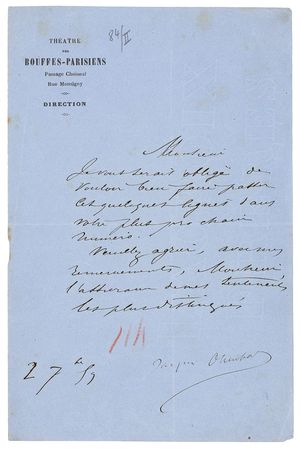 THÉATRE
DES
BOUFFES-PARISIENS
Passage Choiseul
Rue Monsigny
DIRECTION
84/II
Monsieur
Je vous serais obligé de
vouloir bien faire passer
ces quelques lignes dans
votre plus prochain
numéro.
Veuillez agréer, avec mes
remerciements, Monsieur,
l'assurance de mes sentiments
les plus distingués
27
59
Jacques Offenbach